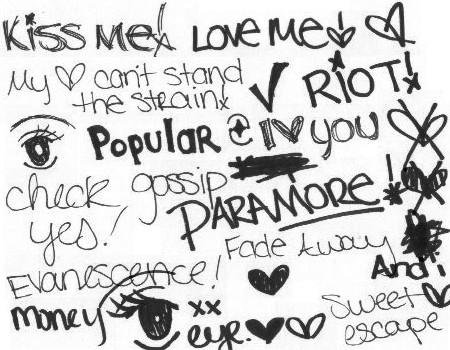 Kiss Me! Love Me!
My ♡ can't stand the strain!
RiOT!
Popular I ♡ you
check yes!
gossip
PARAMORE!
Fade Away
And
Evanescence!
Money
xx
eye.
Sweet escape